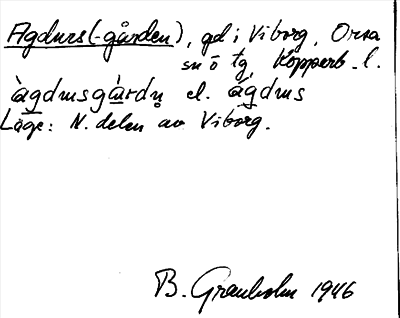 Agdurs(-gården), gd i Viborg, Orsa
sn ö tg, Kopparb. l.
àgdusgàrdn̥ el. ágdus
Läge: N. delen av Viborg.
B. Granholm 1946